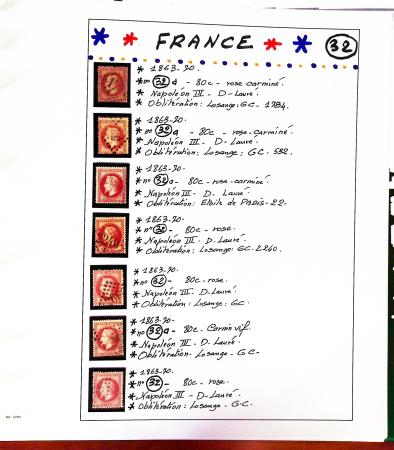 * * FRANCE * * 32
* 1863-70.
* n° 32a - 80c - rose carminé.
* Napoléon III - D-Lauré.
* Oblitération: Losange: GC- 1784.
* 1863-70-
* n° 32a - 80c - rose-carminé.
* Napoléon III - D. Lauré.
* Oblitération: Losange: GC- 532.
* 1863-70-
* n° 32a - 80c - rose-carminé.
* Napoléon III - D- Lauré.
* Oblitération: Etoile de PARIS-22-
* 1863-70
* n° 32 - 80c - rose.
* Napoléon III - D. Lauré.
* Oblitération: Losange: GC-2240.
* 1863-70-
* n° 32 - 80c - rose.
* Napoléon III - D. Lauré.
* Oblitération: Losange: GC.
* 1863-70-
* n° 32a - 80c - Carmin vif.
* Napoléon III - D. Lauré.
* Oblitération- Losange - GC-
* 1863-70.
* n° 32 - 80c - rose.
* Napoléon III - D- Lauré.
* Oblitération: Losange - G.C.